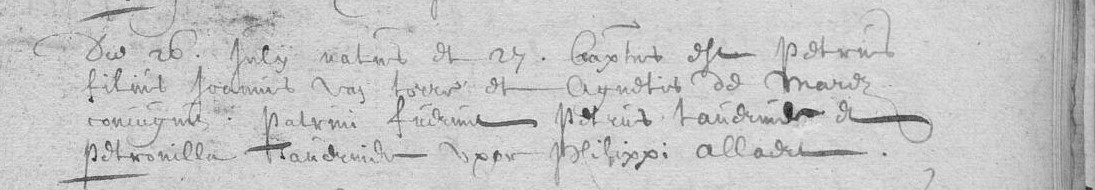 Die 26. July natus et 27. baptus est Petrus
filius Joannis van torre et Agnetis de Mare
coniugum. Patrini fuerunt Petrus et
Petronilla uxor Philippi Allaert.